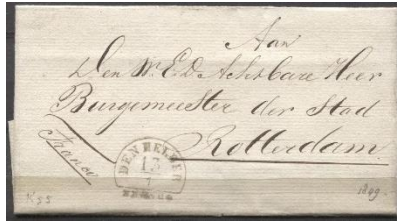 Aan
Den W.E.D. Achtbare Heer
Burgemeester der Stad
Rotterdam
Franco
DEN HELDER
13
1849